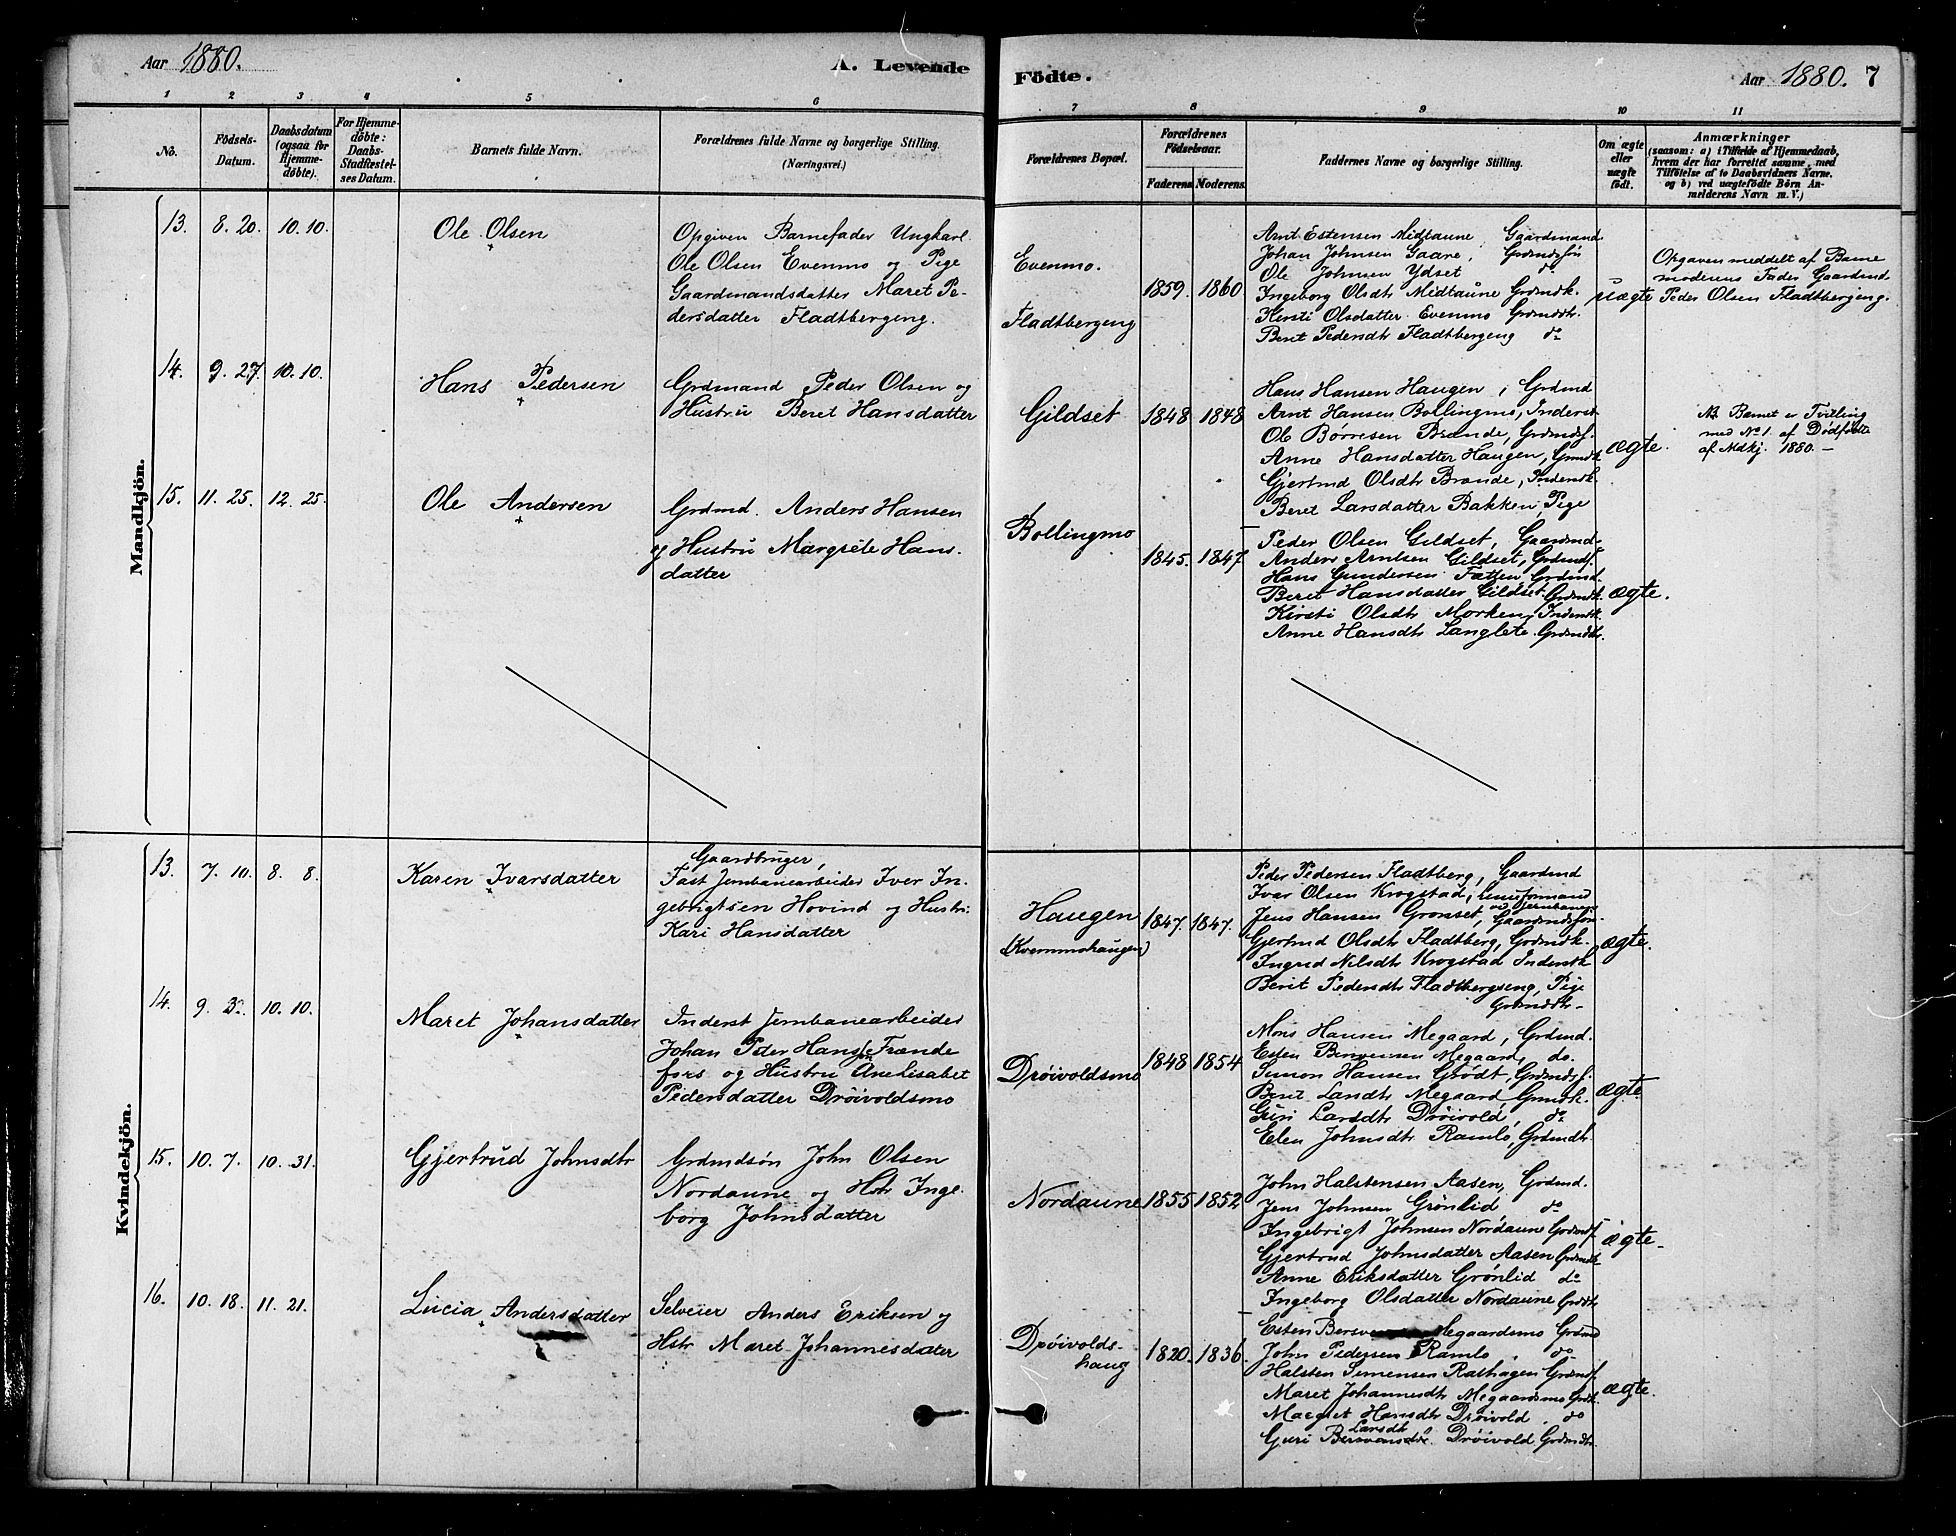 Aar 1880. A. Levende Födte. Aar 1880. 7
1 2 3 4 5 6 7 8 9 10 11
No.
Födsels-
Datum.
Daabsdatum
(ogsaa for
Hjemme-
døbte).
For Hjemme-
døbte:
Daabs-
Stadfæstel-
ses Datum.
Barnets fulde Navn.
Forældrenes fulde Navne og borgerlige Stilling.
(Næringsvei.)
Forældrenes Bopæl.
Forældrenes
Födselsaar.
Faderens. Moderens.
Faddernes Navne og borgerlige Stilling.
Om ægte
eller
uægte
födt.
Anmærkninger
(saasom: a) i Tilfælde af Hjemmedaab,
hvem der har forrettet samme, med
Tilföielse af to Daabsvidners Navne,
og b) ved uægtefödte Börn An-
melderens Navn m.V.)
Mandkjön.
13. 8. 20. 10. 10. Ole Olsen
Opgiven Barnefader Ungkarl
Ole Olsen Evenmo og Pige
Gaardmandsdatter Maret Pe-
dersdatter Fladtbergeng.
Evenmo.
Fladtbergeng
1859. 1860
Arnt Estensen Midtaune, Gaardmand
Johan Johnsen Gaare, Grdmdsøn
Ole Johnsen Ydset do
Ingeborg Olsdtr Midtaune Grdmdk.
Kirsti Olsdatter Evenmo Grdmdtr.
Berit Pedersdtr Fladtbergeng do
uægte
Opgaven meddelt af Barne
moderens Fader Gaardmd.
Peder Olsen Fladtbergeng.
14. 9. 27. 10. 10. Hans Pedersen
Grdmand Peder Olsen og
Hustru Beret Hansdatter
Gildset 1848 1848
Hans Hansen Haugen, Grdmd
Arnt Hansen Bollingmo, Inderst
Ole Børresen Brande, Grdmdsf.
Anne Hansdatter Haugen, Grmdk
Gjertrud Olsdtr Brande, Inderstk.
Beret Larsdatter Bakken, Pige
ægte.
NB. Barnet er Tvilling
med No 1. af Dødfødte
af Mdkj. 1880. —
15. 11. 25. 12. 25. Ole Andersen
Grdmd. Anders Hansen
og Hustru Margrete Hans.
datter
Bollingmo 1845. 1847
Peder Olsen Gildset, Gaardmd-
Anders Arntsen Gildset, Grdmdsf.
Hans Gundersen Fætten Grdmd.
Beret Hansdatter Gildset Grdmdk.
Kirsti Olsdtr Morken, Inderstk.
Anne Hansdtr Langlete Grdmdtr.
ægte.
Kvindekjön.
13. 7. 10. 8. 8. Karen Ivarsdatter
Gaardbruger,
Fast Jernbanearbeider Iver In-
gebrigtsen Hovind og Hustru
Kari Hansdatter
Haugen
(Kvernmohaugen)
1847. 1847.
Peder Pedersen Fladtberg, Gaardmd
Ivar Olsen Krogstad, Linieformand
ved Jernbanen
Jens Hansen Grønset, Gaardmdsføn.
Gjertrud Olsdtr Fladtberg, Grdmdk.
Ingrid Nilsdtr Krogstad Inderstk
Berit Pedersdtr Fladtbergseng, Pige
Grdmdtr-
ægte.
14. 9. 3. 10. 10. Maret Johansdatter
Inderst Jernbanearbeider
Johan Peder Hansen Frænde
fors og Hustru Ane Lisabet
Pedersdatter Drøivoldsmo
Drøivoldsmo 1848 1854
Mons Hansen Megaard, Grdmd.
Esten Bersvensen Megaard, do.
Simon Hansen Grødt, Grdmdsf.
Berit Larsdtr Megaard, Grmdk.
Guri Larsdtr Drøivold, do
Elen Johnsdtr Ramlo, Grdmdtr.
ægte
15. 10. 7. 10. 31. Gjertrud Johnsdtr
Grdmdsøn John Olsen
Nordaune og Hstr Inge.
borg Johnsdatter
Nordaune 1855 1852
John Halstensen Aasen, Grdmd.
Jens Johnsen Grønlid, do
Ingebrigt Johnsen Nordaune Grdmdsf.
Gjertrud Johnsdatter Aasen Grdmdk
Anne Eriksdatter Grønlid do
Ingeborg Olsdatter Nordaune Grdtr
ægte-
16. 10. 18. 11. 21. Lucia Andersdatter
Selveier Anders Eriksen og
Hstr Maret Johannesdatter
Drøivolds-
haug
1820. 1836
Esten Megaardsmo Grdmd
John Pedersen Ramlo do
Halsten Simensen Rathagen Grdmdsf
Maret Johannesdtr Megaardsmo Grdk.
Margret Hansdtr Drøivold. do
Larsdtr
Guri Bersvensdtr. Drøivold Grdmdtr.
ægte.